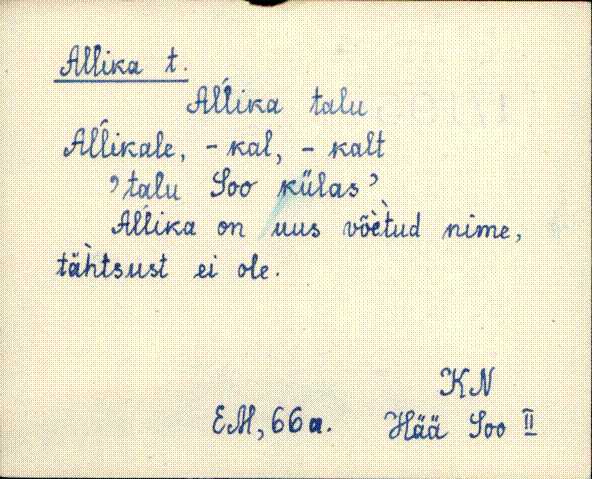 Allika t.
Aĺĺika talu
Aĺĺikale, -kal, -kalt
’talu Soo külas’
Aĺĺika on uus võètùd nime,
tähtsust ei ole.
KN
EM, 66a. Hää Soo II